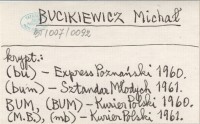 BUCIKIEWICZ Michał
BJ1007/0092
krypt.:
(bu) - Express Poznański 1960.
(bum) - Sztandar Młodych 1961.
BUM, (BUM) - Kurier Polski 1960.
(M.B.), (mb) - Kurier Polski 1961.